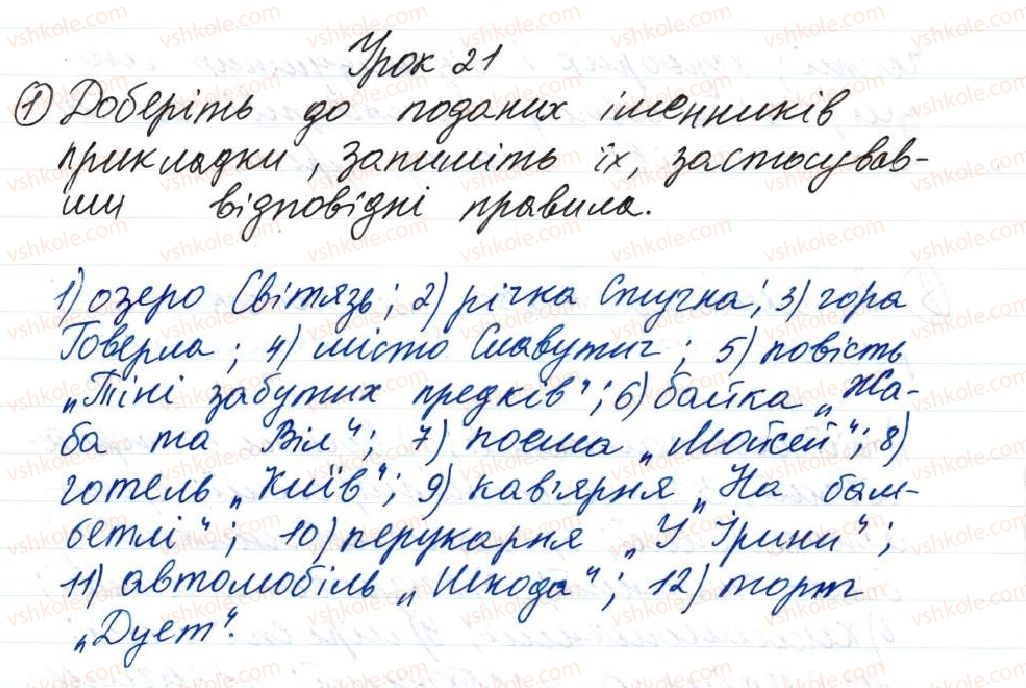 Урок 21
① Доберіть до поданих іменників
прикладки, запишіть їх, застосував-
ши відповідні правила.
1) озеро Світязь; 2) річка Случка; 3) гора
Говерла; 4) місто Славутич; 5) повість
„Тіні забутих предків“; 6) байка „Жа-
ба та Віл“; 7) поема „Мойсей“; 8)
готель „Київ“; 9) кав'ярня „На бам-
бетлі“; 10) перукарня „У Ірини“;
11) автомобіль „Шкода“; 12) торт
„Дует“.